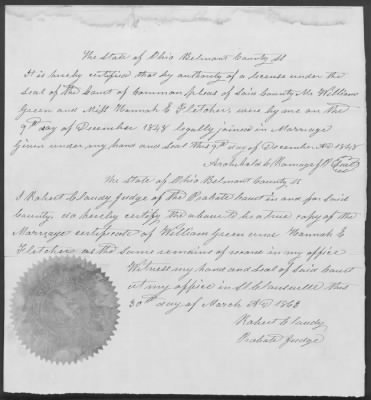 The State of Ohio Belmont County ss
It is hereby certified that by authority of a license under the
Seal of the Court of Common pleas of Said County Mr William
Green and Miss Hannah E Fletcher, were by me on the
9th day of December 1848 legally joined in Marriage
Given under my hand and Seal this 9th day of December AD 1848
Archibald C Ramage J P Seal
The State of Ohio Belmont County ss
I Robert Claudy Judge of the Probate Court in and for said
County, do hereby certify the above to be a true copy of the
Marriage certificate of William Green and Hannah E
Fletcher as the same remains of record in my office
Witness my hand and Seal of Said Court
at my office in St Clairsville this
30th day of March AD 1863
Robert Claudy
Probate Judge